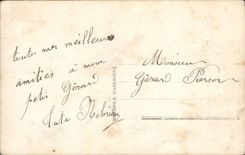 toutes mes meilleurs
amitiés à mon
petit Gérard
Tata
Monsieur
Gérard Pierson